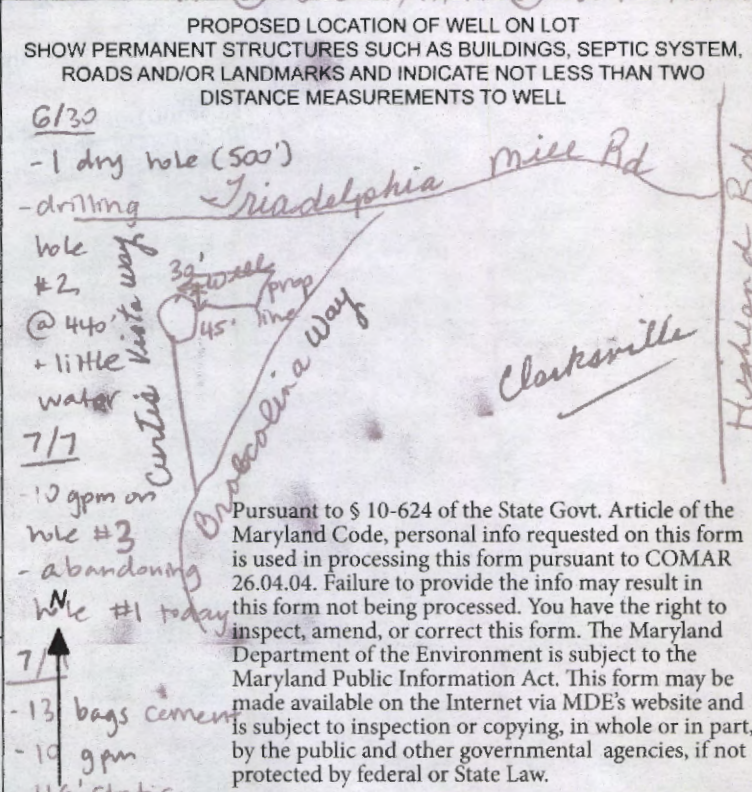 PROPOSED LOCATION OF WELL ON LOT
SHOW PERMANENT STRUCTURES SUCH AS BUILDINGS, SEPTIC SYSTEM,
ROADS AND/OR LANDMARKS AND INDICATE NOT LESS THAN TWO
DISTANCE MEASUREMENTS TO WELL
6/30
- 1 dry hole (500')
- drilling
hole
#2
@ 440'
+ little
water
7/7
- 10 gpm on
hole #3
- abandoning
hole #1 today
N
7/
- 13 bags cement
- 10 gpm
static
Triadelphia Mill Rd
Highland Rd
Curtis Vista Way
30'
well
45'
prop
line
Broccolina Way
Clarksville
Pursuant to § 10-624 of the State Govt. Article of the
Maryland Code, personal info requested on this form
is used in processing this form pursuant to COMAR
26.04.04. Failure to provide the info may result in
this form not being processed. You have the right to
inspect, amend, or correct this form. The Maryland
Department of the Environment is subject to the
Maryland Public Information Act. This form may be
made available on the Internet via MDE's website and
is subject to inspection or copying, in whole or in part,
by the public and other governmental agencies, if not
protected by federal or State Law.